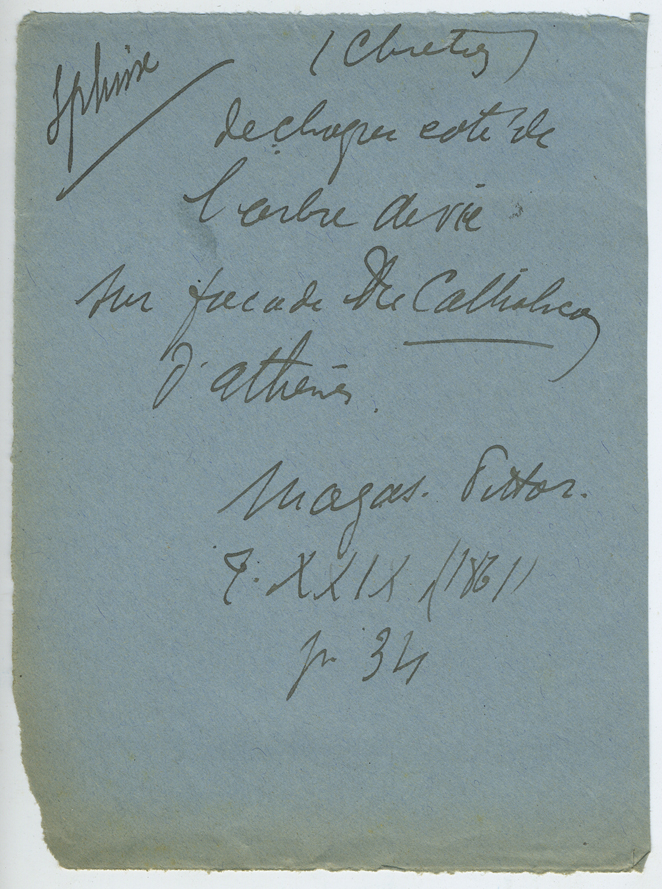 Sphinx
(Chretien)
de chaque coté de
l'arbre de vie
sur facade du Catholicon
d'athenes.
Magas. Pittor.
T. XXIX (1861)
p. 34